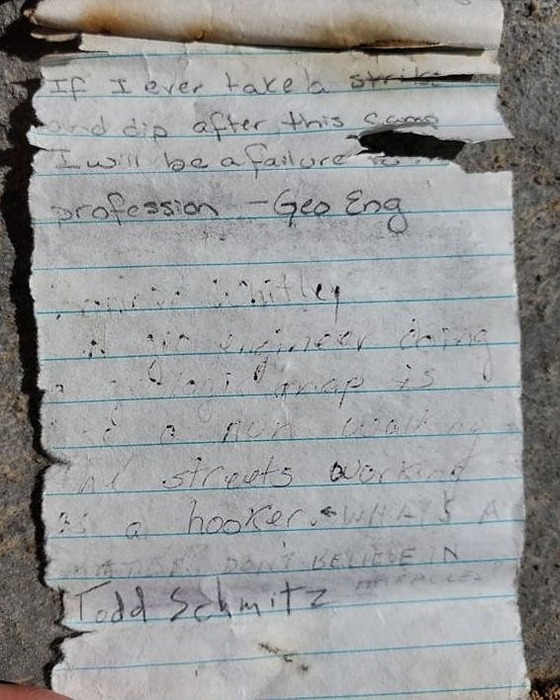 If I ever take a strike
and dip after this camp
I will be a failure
profession - Geo Eng
Whitley
engineer doing
a geologic map is
a nun walking
the streets working
as a hooker. ← WHATS A
DON'T BELIEVE IN
MIRACLES?
Todd Schmitz